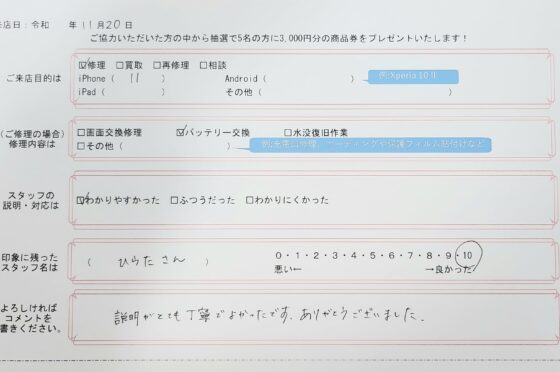 来店日：令和　年11月20日
ご協力いただいた方の中から抽選で5名の方に3,000円分の商品券をプレゼントいたします！
ご来店目的は
☑修理 □買取 □再修理 □相談
iPhone（ 11 ） Android（ ） 例:Xperia 10 II
iPad（ ） その他（ ）
（ご修理の場合）
修理内容は
□画面交換修理 ☑バッテリー交換 □水没復旧作業
□その他（ ） 例:充電口修理、コーティングや保護フィルム貼付けなど
スタッフの
説明・対応は
☑わかりやすかった □ふつうだった □わかりにくかった
印象に残った
スタッフ名は
（ ひらたさん ）
0・1・2・3・4・5・6・7・8・9・10
悪い← →良かった
よろしければ
コメントを
お書きください。
説明がとても丁寧でよかったです。ありがとうございました。